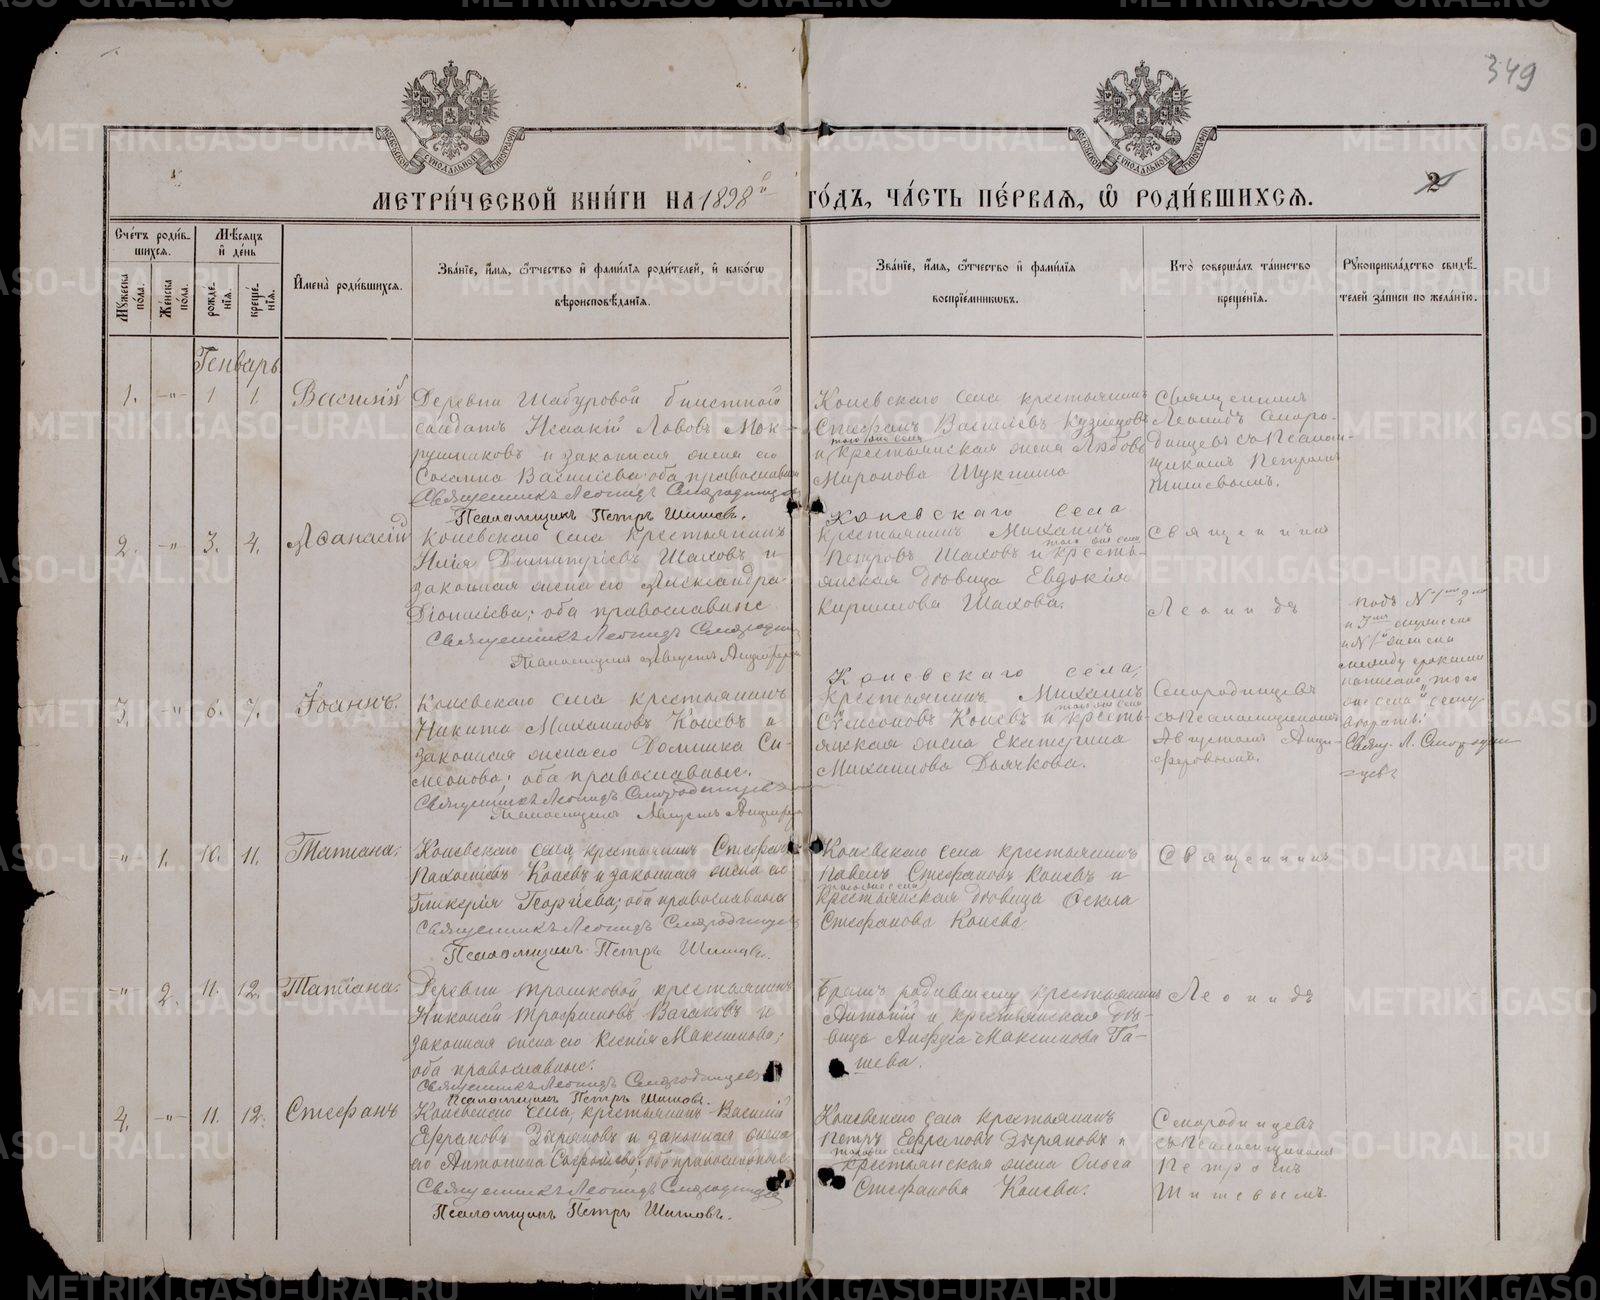 349
МЕТРИ́ЧЕСКОЙ КНИ́ГИ НА 1898й ГО́ДЪ, ЧА́СТЬ ПЕ́РВАЯ, Ѡ РОДИ́ВШИХСЯ.
2
Сче́тъ роди́в-
шихся.
Мѣ́сяцъ
и де́нь
Мꙋ́жеска по́ла.
Же́нска по́ла.
рожде́-
нія.
креще́-
нія.
Имена̀ роди́вшихся.
Зва́ніе, и́мя, ѻ́тчество и фами́лія роди́телей, и како́гѡ
вѣроисповѣ́данія.
Зва́ніе, и́мя, ѻ́тчество и фами́лія
воспріе́мниковъ.
Кто̀ соверша́лъ та́инство
креще́нія.
Рꙋкоприкла́дство свидѣ́-
телей за́писи по жела́нію.
Генварь
1. -„- 1 1. Василій
Деревни Шабуровой билетной
солдатъ Исакій Львовъ Мок-
рушниковъ и законная жена его
Созонна Василіева; оба православные
Священникъ Леонидъ Смородинцевъ
Псаломщикъ Петръ Шишевъ.
Коневскаго села крестьянинъ
Стефанъ Василіевъ Кузнецовъ
того же села
и крестьянская жена Любовь
Миронова Щукина
Священникъ
Леонидъ Сморо-
динцевъ съ Псалом-
щикомъ Петромъ
Шишевымъ.
2. -„- 3. 4. Аѳанасій
Коневскаго села крестьянинъ
Илія Димитріевъ Шаховъ и
законная жена его Александра
Діонисіева; оба православные
Священникъ Леонидъ Смородинцевъ
Псаломщикъ Августъ Анциферовъ
Коневскаго села
крестьянинъ Михаилъ
того же села
Петровъ Шаховъ и кресть-
янская дѣвица Евдокія
Кириллова Шахова.
Священникъ
Леонидъ
3. -„- 6. 7. Іоаннъ.
Коневскаго села крестьянинъ
Никита Михаиловъ Коневъ и
законная жена его Домника Си-
меонова; оба православные.
Священникъ Леонидъ Смородинцевъ
Псаломщикъ Августъ Анциферовъ
Коневскаго села,
крестьянинъ Михаилъ
того же села
Семеновъ Коневъ и кресть-
янская жена Екатерина
Михаилова Дьячкова.
Смородинцевъ
съ Псаломщикомъ
Августомъ Анци-
феровымъ.
подъ №
и
и №
между строками
написано, того
же села
вѣрить:
Свящ. Л. Смородин-
цевъ
-„- 1. 10. 11. Татіана.
Коневскаго села, крестьянинъ Стефанъ
Пахомовъ Коневъ и законная жена его
Гликерія Георгіева; оба православные
Священникъ Леонидъ Смородинцевъ
Псаломщикъ Петръ Шишевъ.
Коневскаго села крестьянинъ
Павелъ Стефановъ Коневъ и
того же села
крестьянская дѣвица Ѳекла
Стефанова Конева.
Священникъ
-„- 2. 11. 12. Татіана.
Деревни Трошковой, крестьянинъ
Николай Трофимовъ
законная жена его Ксенія Максимова;
оба православные.
Священникъ Леонидъ Смородинцевъ
Псаломщикъ Петръ Шишовъ.
Братъ родившему крестьянинъ
Антоній и крестьянская дѣ-
вица Анфуса Максимова Га-
шева.
Леонидъ
4. -„- 11. 12. Стефанъ
Коневскаго села, крестьянинъ Василій
Ефремовъ Зыряновъ и законная жена
его Антонина; оба православные.
Священникъ Леонидъ Смородинцевъ
Псаломщикъ Петръ Шишовъ.
Коневскаго села крестьянинъ
Петръ Ефремовъ Зыряновъ и
того же села
крестьянская жена Ольга
Стефанова Конева.
Смородинцевъ
съ Псаломщикомъ
Петромъ
Шишевымъ.
METRIKI.GASO-URAL.RU